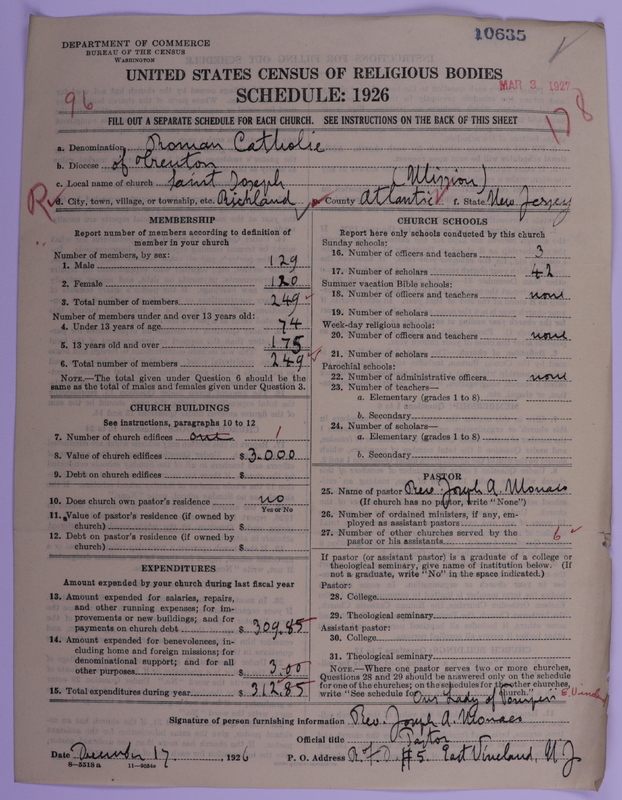 10635
DEPARTMENT OF COMMERCE
BUREAU OF THE CENSUS
WASHINGTON
UNITED STATES CENSUS OF RELIGIOUS BODIES
MAR 3 1927
SCHEDULE: 1926
96
178
FILL OUT A SEPARATE SCHEDULE FOR EACH CHURCH. SEE INSTRUCTIONS ON THE BACK OF THIS SHEET
a. Denomination Roman Catholic
b. Diocese of Trenton
c. Local name of church Saint Joseph (Mission)
R d. City, town, village, or township, etc. Richland e. County Atlantic f. State New Jersey
MEMBERSHIP
Report number of members according to definition of
member in your church
Number of members, by sex:
1. Male 129
2. Female 120
3. Total number of members 249
Number of members under and over 13 years old:
4. Under 13 years of age 74
5. 13 years old and over 175
6. Total number of members 249
NOTE.—The total given under Question 6 should be the
same as the total of males and females given under Question 3.
CHURCH BUILDINGS
See instructions, paragraphs 10 to 12
7. Number of church edifices one 1
8. Value of church edifices $ 3.000
9. Debt on church edifices $
10. Does church own pastor's residence no
Yes or No
11. Value of pastor's residence (if owned by
church) $
12. Debt on pastor's residence (if owned by
church) $
EXPENDITURES
Amount expended by your church during last fiscal year
13. Amount expended for salaries, repairs,
and other running expenses; for im-
provements or new buildings; and for
payments on church debt $ 309.85
14. Amount expended for benevolences, in-
cluding home and foreign missions; for
denominational support; and for all
other purposes $ 3.00
15. Total expenditures during year $ 312.85
CHURCH SCHOOLS
Report here only schools conducted by this church
Sunday schools:
16. Number of officers and teachers 3
17. Number of scholars 42
Summer vacation Bible schools:
18. Number of officers and teachers none
19. Number of scholars
Week-day religious schools:
20. Number of officers and teachers none
21. Number of scholars
Parochial schools:
22. Number of administrative officers none
23. Number of teachers—
a. Elementary (grades 1 to 8)
b. Secondary
24. Number of scholars—
a. Elementary (grades 1 to 8)
b. Secondary
PASTOR
25. Name of pastor Rev. Joseph A. Monaco
(If church has no pastor, write "None")
26. Number of ordained ministers, if any, em-
ployed as assistant pastors
27. Number of other churches served by the
pastor or his assistants 6
If pastor (or assistant pastor) is a graduate of a college or
theological seminary, give name of institution below. (If
not a graduate, write "No" in the space indicated.)
Pastor:
28. College
29. Theological seminary
Assistant pastor:
30. College
31. Theological seminary
NOTE.—Where one pastor serves two or more churches,
Questions 28 and 29 should be answered only on the schedule
for one of the churches; on the schedules for the other churches,
write "See schedule for Our Lady of Pompeii church." E. Vineland
Signature of person furnishing information Rev. Joseph A. Monaco
Official title Pastor
Date December 17, 1926 P. O. Address R.F.D. #5. East Vineland, N.J.
8—5519 a 11—9054a